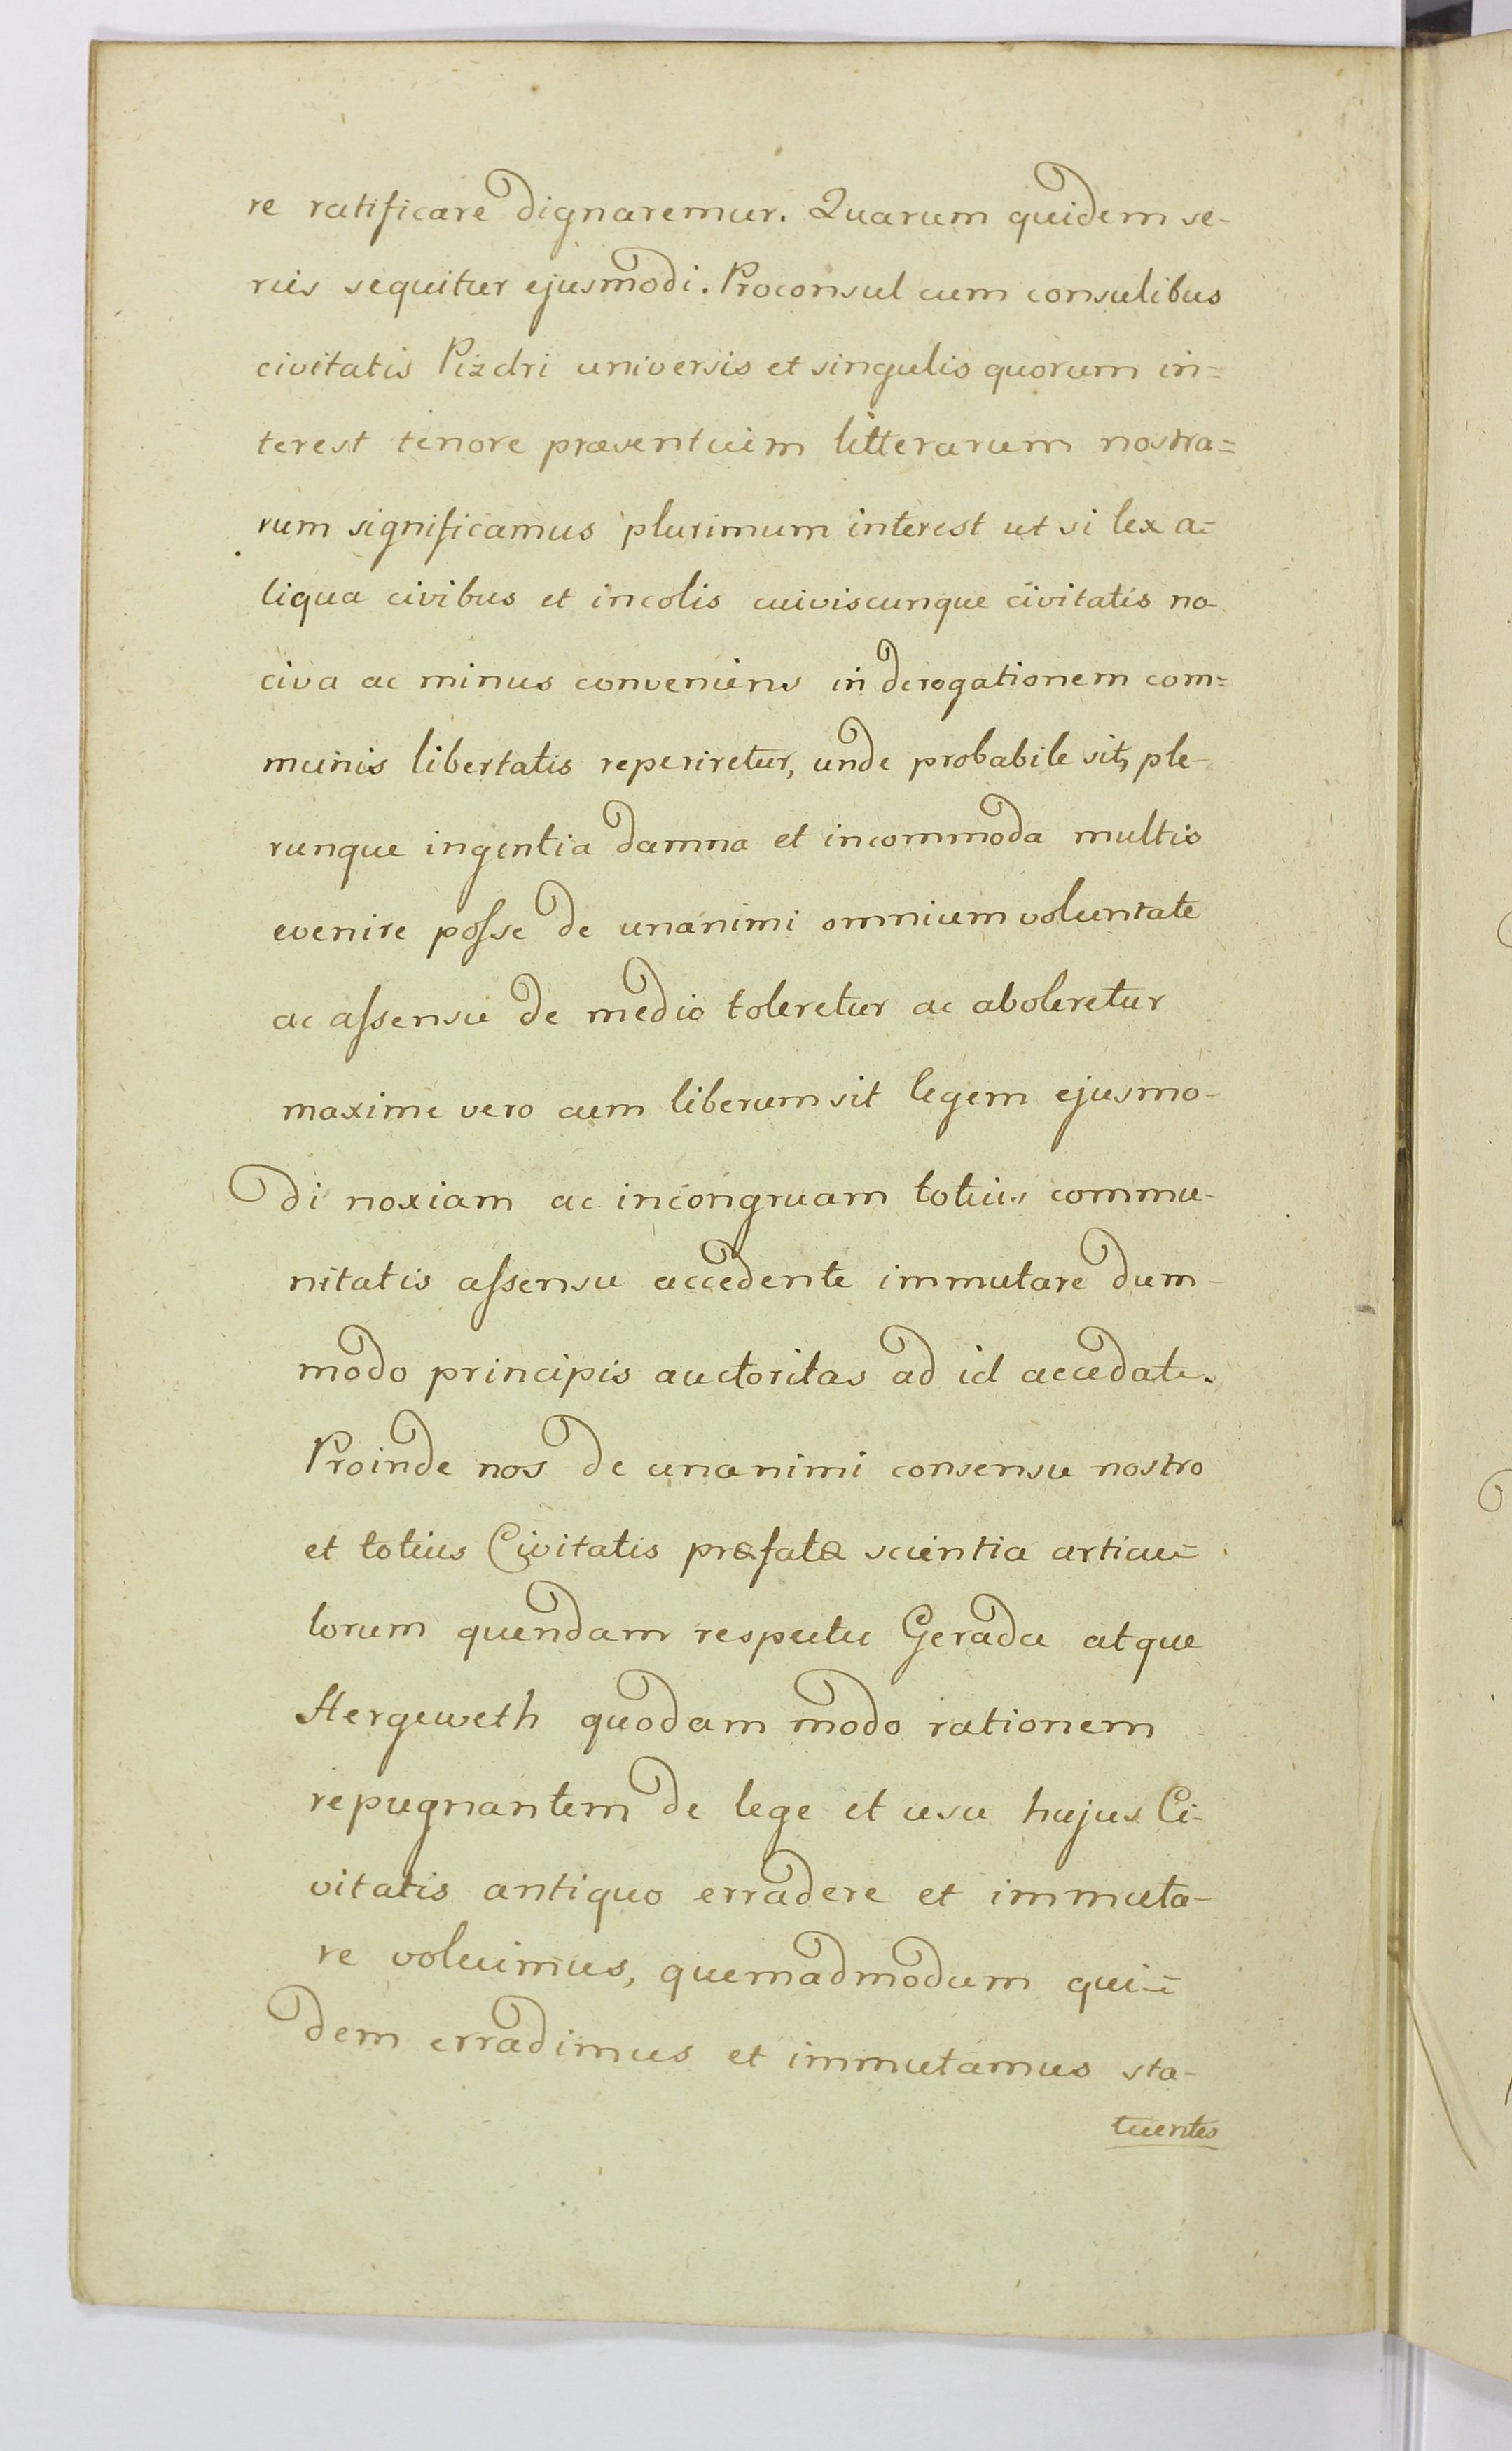 re ratificare dignaremur. Quarum quidem se-
ries sequitur ejusmodi. Proconsul cum consulibus
civitatis Pizdri universis et singulis quorum in=
terest tenore præsentium litterarum nostra=
rum significamus plurimum interest ut si lex a=
liqua civibus et incolis cuiviscunque civitatis no-
civa ac minus conveniens in derogationem com=
munis libertatis reperiretur, unde probabile sit, ple-
runque ingentia damna et incommoda multis
evenire posse de unanimi omnium voluntate
ac assensu de medio toleretur ac aboleretur
maxime vero cum liberum sit legem ejusmo-
di noxiam ac incongruam totius commu-
nitatis assensu accedente immutare dum-
modo principis auctoritas ad id accedat.
Proinde nos de unanimi consensu nostro
et totius Civitatis præfatæ scientia articu=
lorum quendam respectu Gerada atque
Hergeweth quodam modo rationem
repugnantem de lege et usu hujus Ci-
vitatis antiquo erradere et immuta-
re voluimus, quemadmodum qui=
dem erradimus et immutamus sta-
tuentes